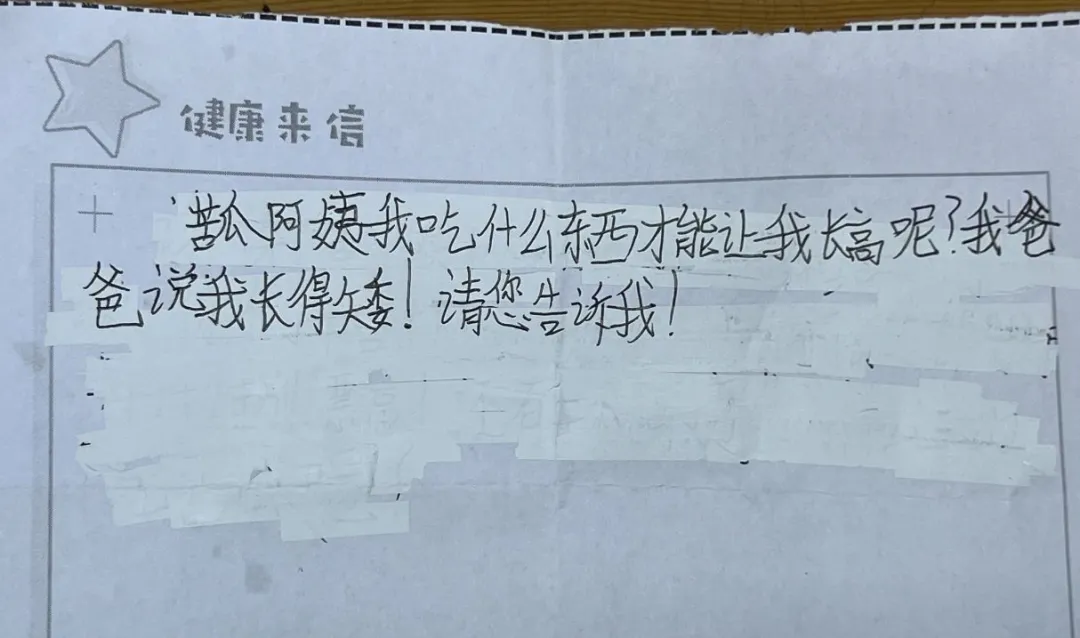 健康来信
苦瓜阿姨我吃什么东西才能让我长高呢?我爸
爸说我长得矮!请您告诉我!